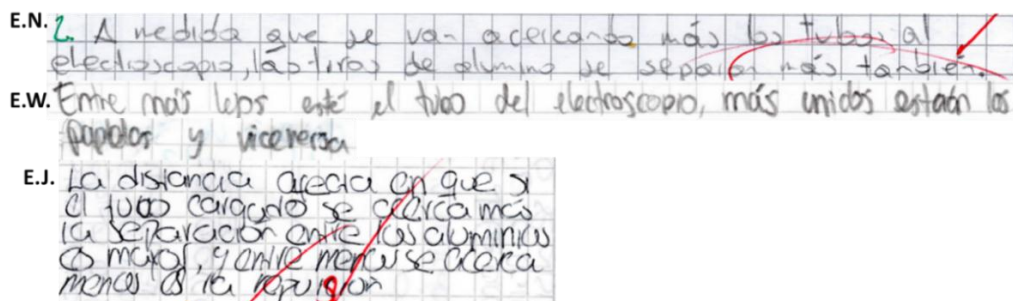 E.N. 2. A medida que se van acercando más los tubos al
electroscopio, las tiras de aluminio se separan más también.
E.W. Entre más lejos esté el tubo del electroscopio, más unidos estarán los
papeles y viceversa
E.J. La distancia afecta en que si
el tubo cargado se acerca más
la separación entre los aluminios
es mayor, y entre menos se acerca
menos es la repulsión